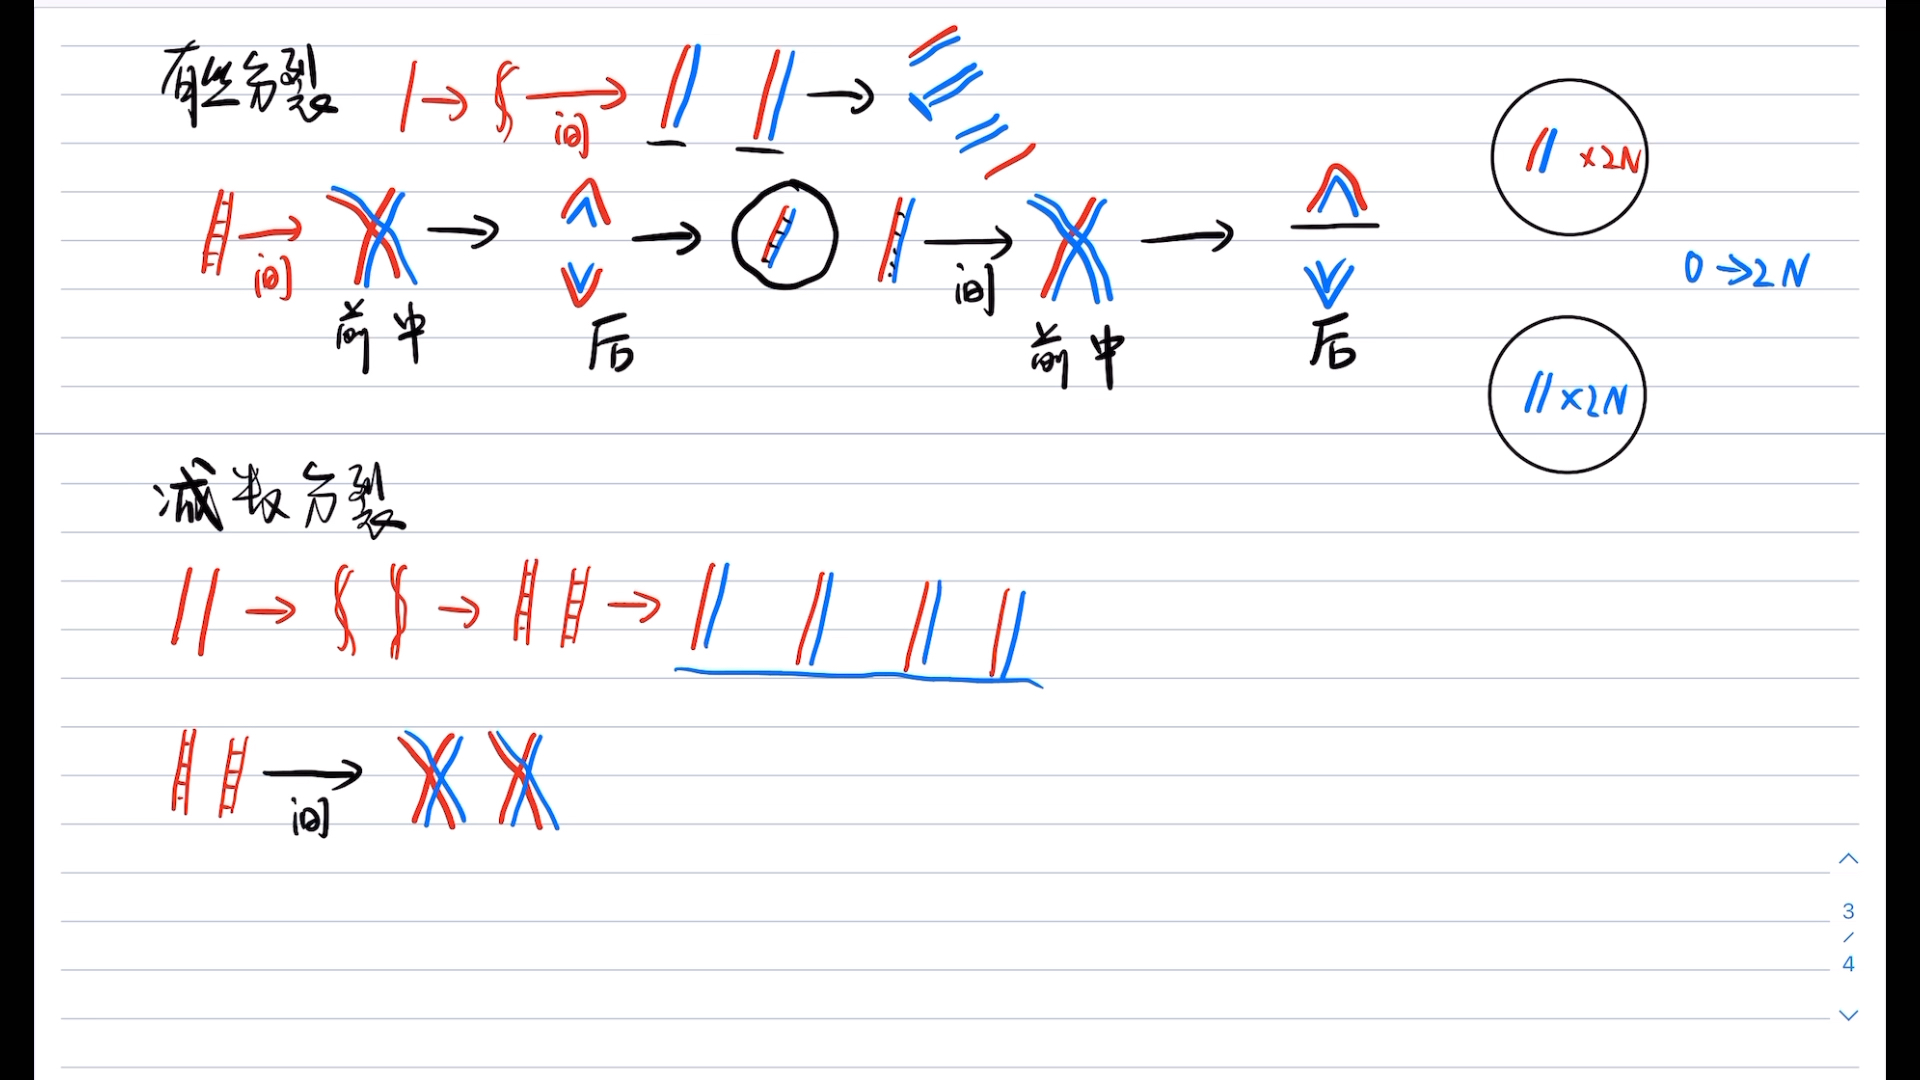 有丝分裂
间
×2N
间
前 中
后
间
前 中
后
0→2N
×2N
减数分裂
间
3
/
4